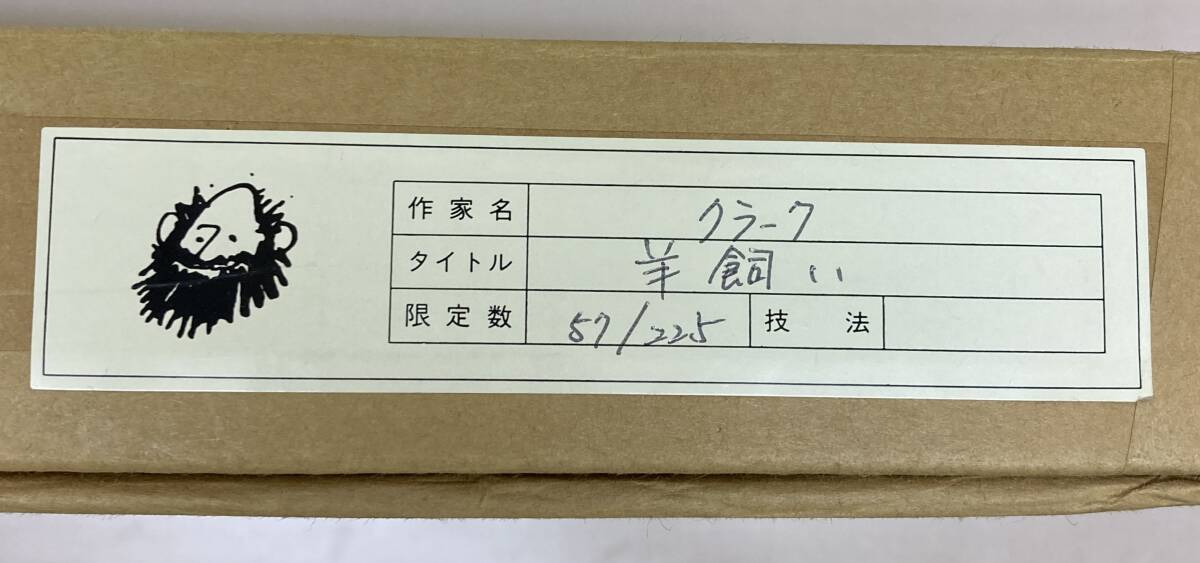 作家名 クラーク
タイトル 羊飼い
限定数 57/225 技法